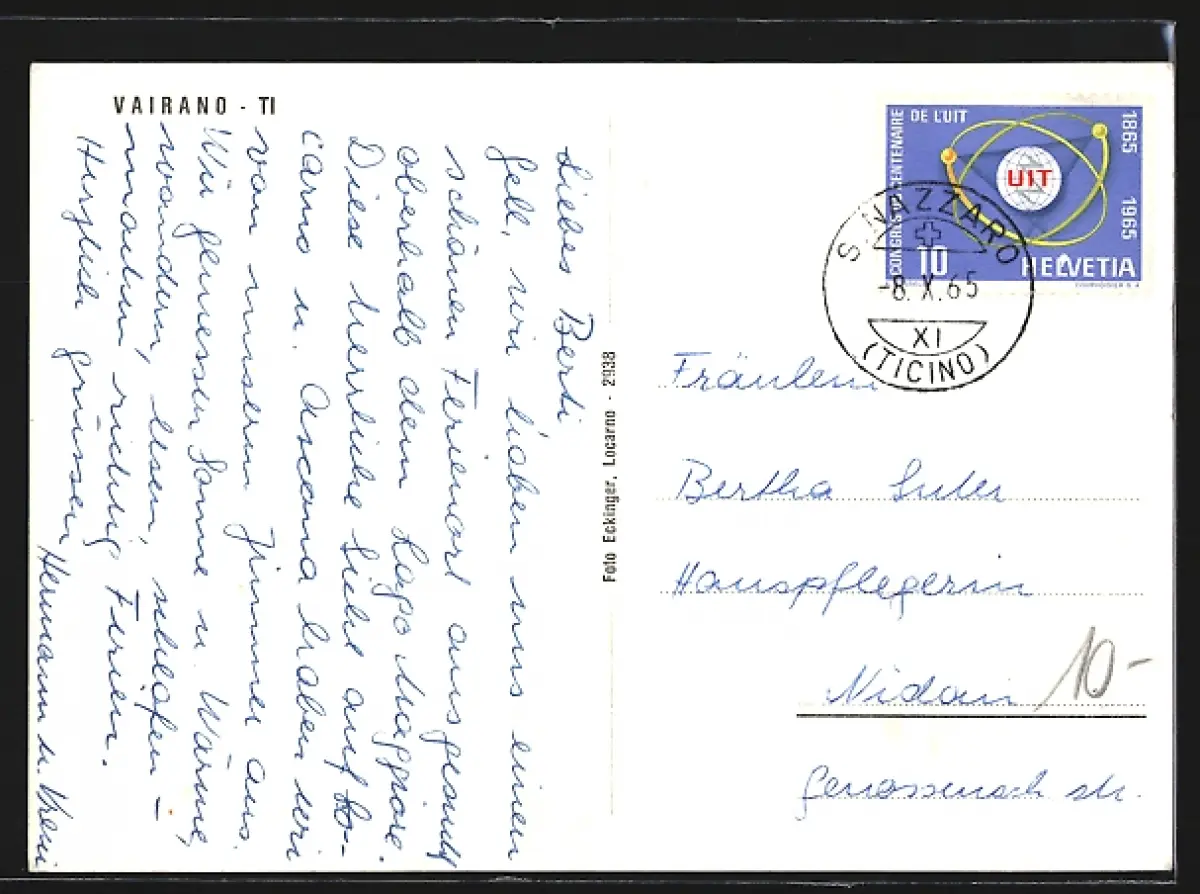 VAIRANO - TI
Liebes Berti
Gell, wir haben uns einen
schönen Ferienort ausgesucht
oberhalb dem Lago Maggiore.
Diese herrliche Sicht auf Lo-
carno u. Ascona haben wir
von unserm Zimmer aus.
Wir geniessen Sonne u. Wärme,
wandern, lesen, schlafen –
machen richtig Ferien.
Herzlich grüssen
Hermann u. Vreni
Foto Eckinger, Locarno - 2938
CONGRES DU CENTENAIRE
DE L'UIT
1865 1965
UIT
10
HELVETIA
S. NAZZARO
-8.X.65
XI
(TICINO)
Fräulein
Bertha Suter
Hauspflegerin
Nidau
10-
Genossensch str.